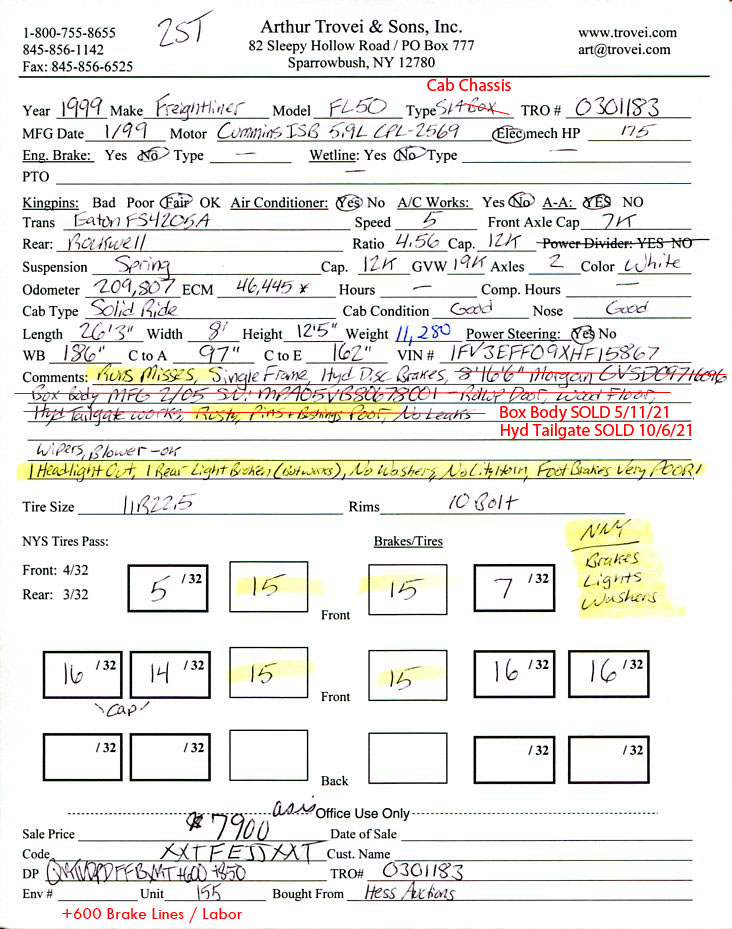 1-800-755-8655
845-856-1142
Fax: 845-856-6525
2ST
Arthur Trovei & Sons, Inc.
82 Sleepy Hollow Road / PO Box 777
Sparrowbush, NY 12780
www.trovei.com
art@trovei.com
Cab Chassis
Year 1999 Make Freightliner Model FL50 Type S/A Box TRO # 0301183
MFG Date 1/99 Motor Cummins ISB 5.9L CPL-2569 Elec mech HP 175
Eng. Brake: Yes No Type — Wetline: Yes No Type —
PTO —
Kingpins: Bad Poor Fair OK Air Conditioner: Yes No A/C Works: Yes No A-A: YES NO
Trans Eaton FS4205A Speed 5 Front Axle Cap 7K
Rear: Rockwell Ratio 4.56 Cap. 12K Power Divider: YES NO
Suspension Spring Cap. 12K GVW 19K Axles 2 Color White
Odometer 209,807 ECM 46,445 * Hours — Comp. Hours —
Cab Type Solid Ride Cab Condition Good Nose Good
Length 26'3" Width 8' Height 12'5" Weight 11,280 Power Steering: Yes No
WB 186" C to A 97" C to E 162" VIN # 1FV3EFF09XHF15867
Comments: Runs Misses, Single Frame, Hyd Disc Brakes, 8'16'6" Morgan
Box Body MFG 2/05 Rollup Door, Wood Floor,
Hyd Tailgate works, Rusty, Pins + Bushings Poor, No Leaks
Box Body SOLD 5/11/21
Hyd Tailgate SOLD 10/6/21
Wipers, Blower - OK
1 Headlight Out, 1 Rear Light Broken (but works), No Washers, No City Horn, Foot Brakes Very POOR!
Tire Size 11R22.5 Rims 10 Bolt
NYS Tires Pass: Brakes/Tires
NNY
Brakes
Lights
Washers
Front: 4/32
Rear: 3/32
5 /32 15 Front 15 7 /32
16 /32 14 /32 15 Front 15 16 /32 16 /32
\Cap/
/32 /32 Back /32 /32
Office Use Only
Sale Price $7900 asis Date of Sale
Code XXTFEJJXXT Cust. Name
DP +600 +850 TRO# 0301183
Env # Unit 155 Bought From Hess Auctions
+600 Brake Lines / Labor